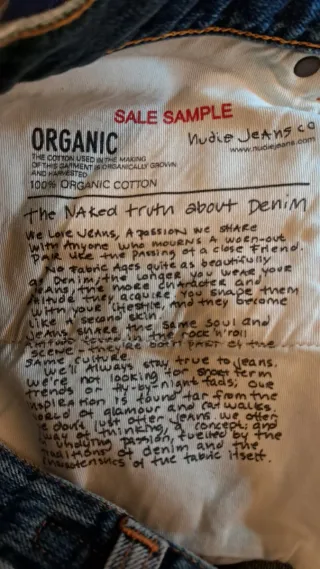 SALE SAMPLE
ORGANIC
THE COTTON USED IN THE MAKING
OF THIS GARMENT IS ORGANICALLY GROWN
AND HARVESTED
100% ORGANIC COTTON
Nudie Jeans co
www.nudiejeans.com
The Naked truth about Denim
We Love Jeans, A passion we share
with Anyone who mourns a worn-out
pair like the passing of a close Friend.
No Fabric Ages quite as beautifully
as Denim. The Longer you wear your
Jeans the more character and
attitude they acquire. You shape them
with your Lifestyle, and they become
Like a second skin.
Jeans share the same soul and
the rock'n'roll
scene - they're both part of the
same culture.
We'll Always stay true to Jeans.
We're not looking for short term
trends or fly-by-night fads; our
inspiration is found far from the
world of glamour and catwalks.
We don't just offer jeans. We offer
way of thinking, a concept; and
undying passion, fuelled by the
traditions of denim and the
characteristics of the fabric itself.